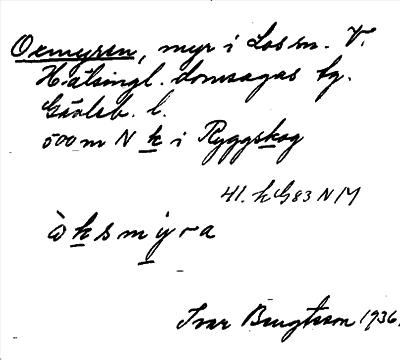 Oxmyren, myr i Los sn. V.
Hälsingl. domsagas tg.
Gävleb. l.
500 m N k i Ryggskog
41. h G 83 N M
òksmyra
Ivar Bengtsson 1936.